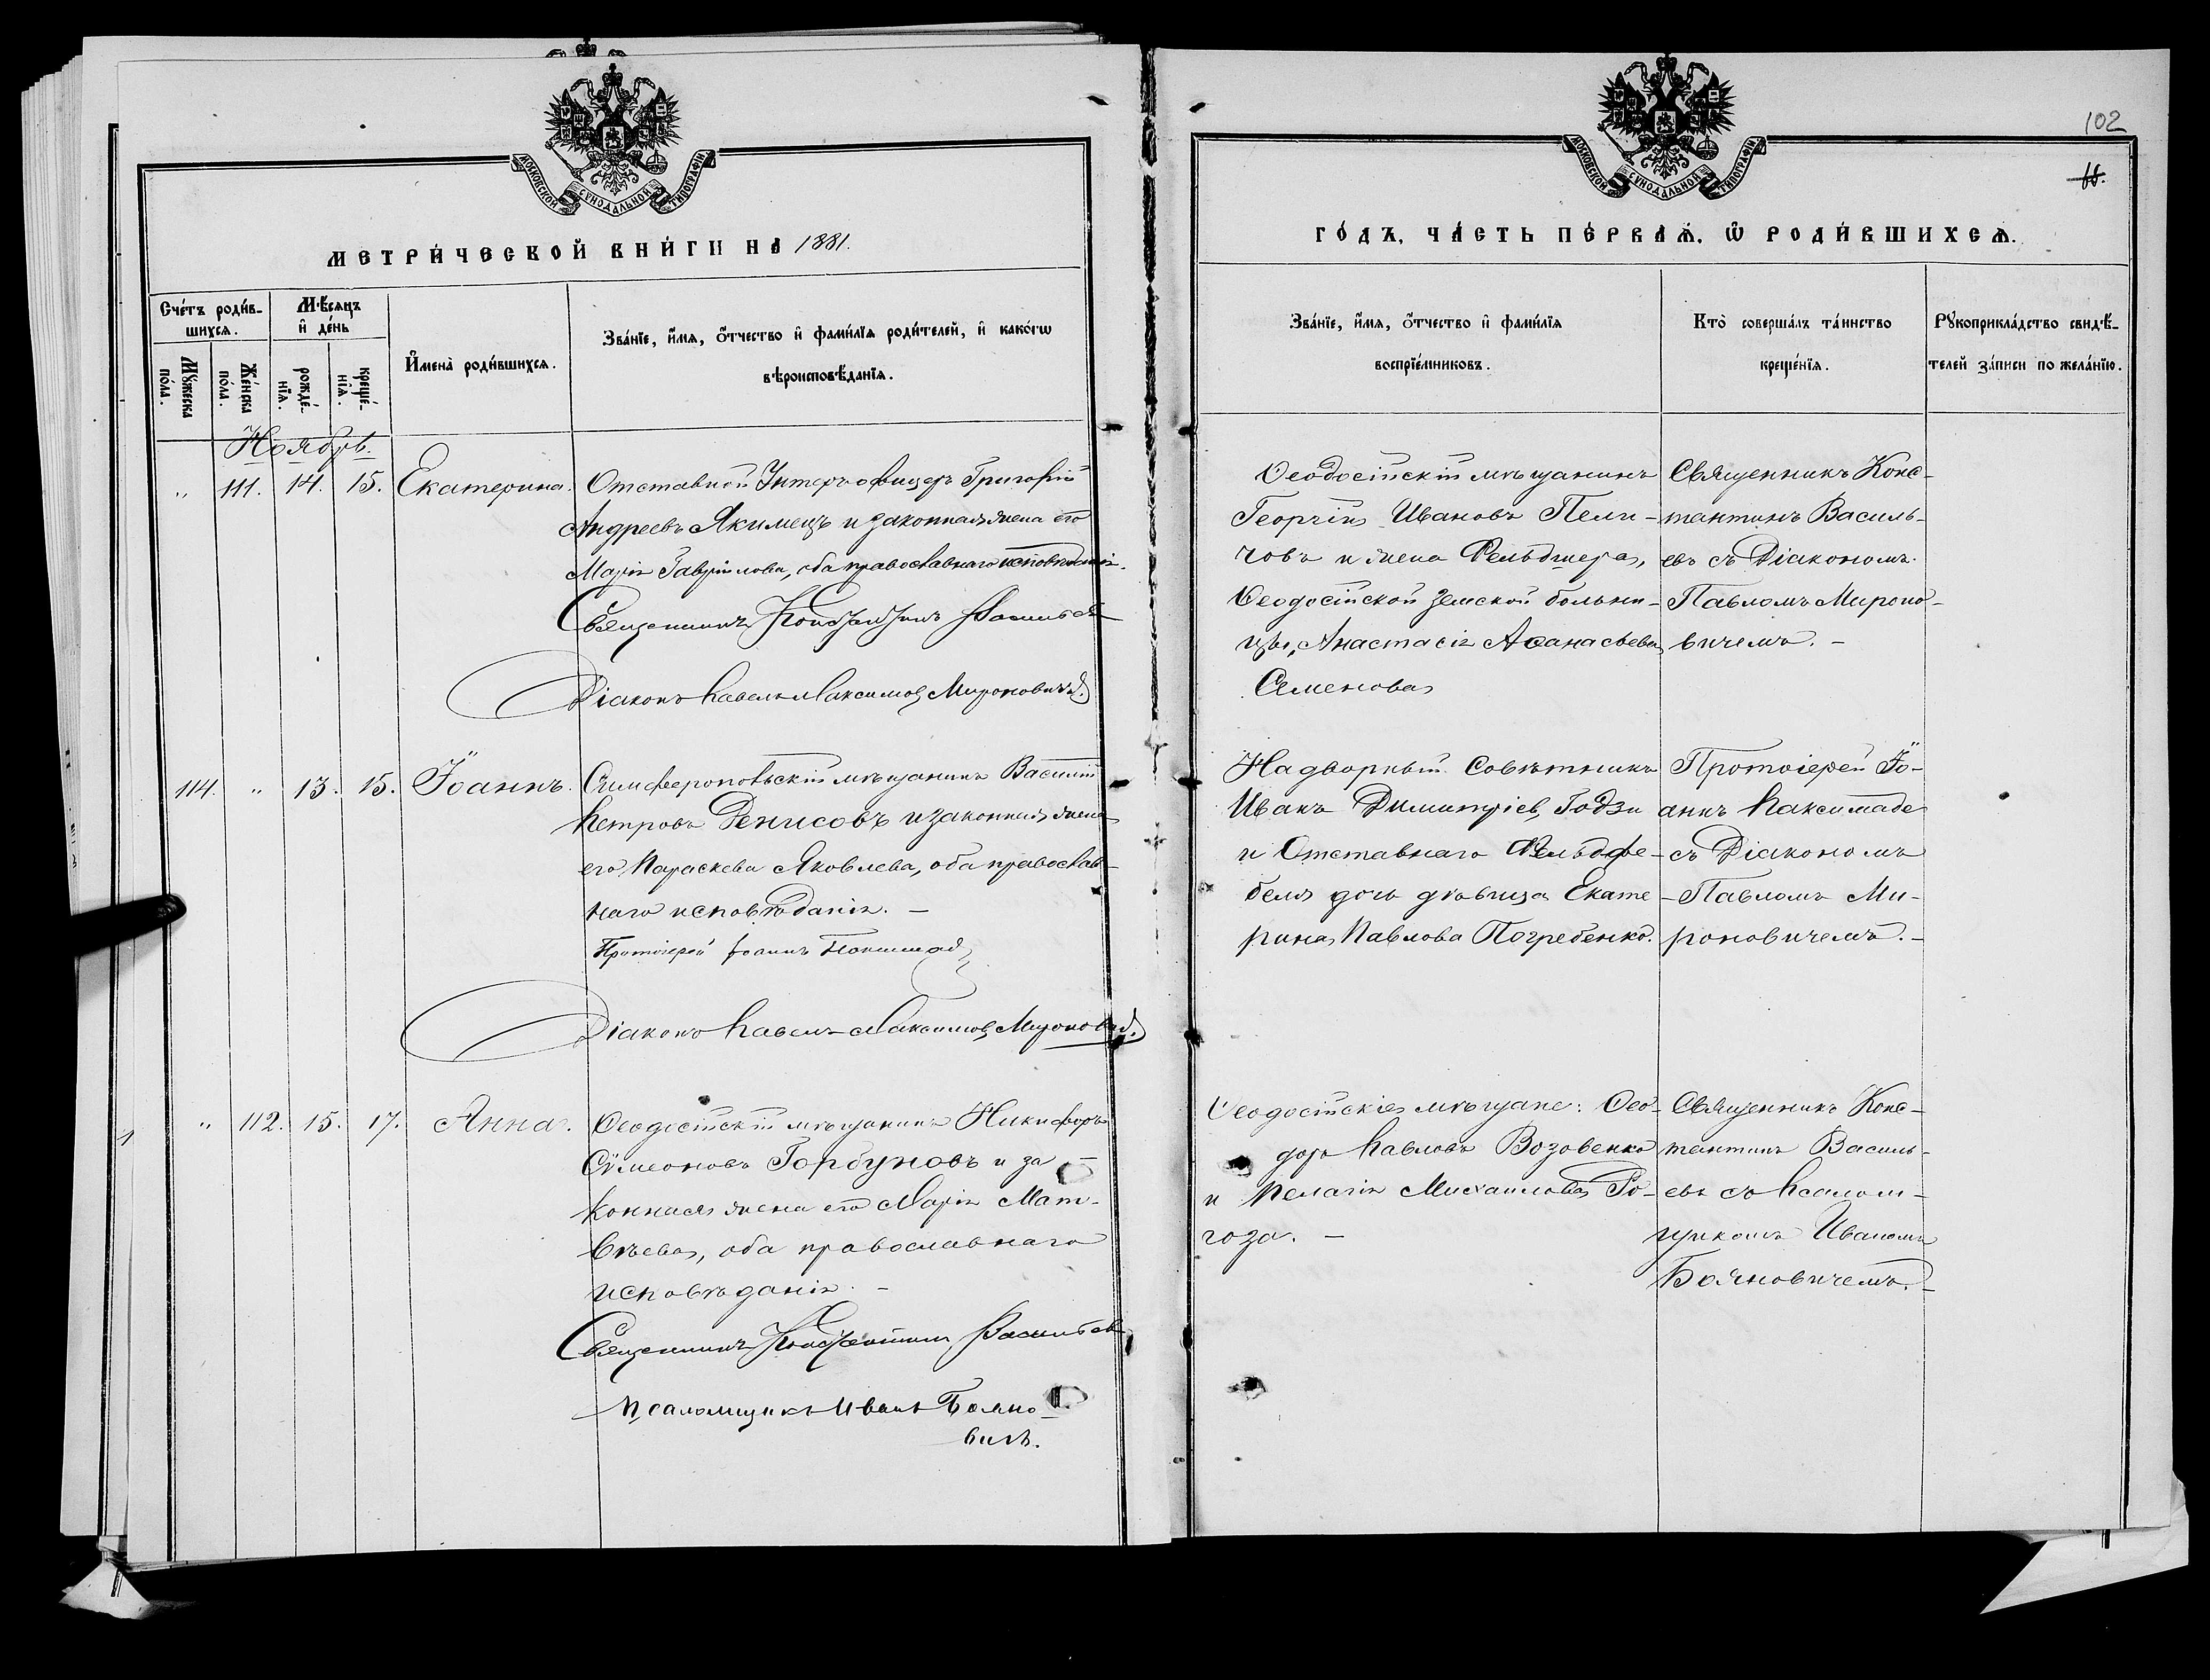 МОСКОВСКОЙ СУНОДАЛЬНОЙ ТИПОГРАФІИ
МЕТРИ́ЧЕСКОЙ КНИ́ГИ НА 1881.
Сче́тъ роди́в-
шихсѧ.
Мѣ́сѧцъ
и҆ де́нь
Мꙋ́жеска
по́ла.
Же́нска
по́ла.
рожде́-
нїѧ.
креще́-
нїѧ.
И҆мена̀ роди́вшихсѧ.
Зва́нїе, и҆́мѧ, ѻ҆́тчество и҆ фами́лїѧ роди́телей, и҆ како́гѡ
вѣроисповѣ́данїѧ.
Ноябрь.
„ 111. 14. 15. Екатерина. Отставной Унтеръ-офицеръ Григорій
Андреевъ Якимецъ и законная жена его
Марія Гаврилова, оба православнаго исповѣданія.
Священникъ Константинъ Васильев
Діаконъ Павелъ Максимов Мироновичъ.
114. „ 13. 15. Іоаннъ. Симферопольскій мѣщанинъ Василій
Петровъ Денисовъ и законная жена
его, Параскева Яковлева, оба православ-
наго исповѣданія. —
Протоіерей Іоаннъ
Діаконъ Павелъ Максимов Миронович.
„ 112. 15. 17. Анна. Ѳеодосійскій мѣщанинъ Никифоръ
Сѵмеоновъ Горбуновъ и за-
конная жена его Марія Мат-
вѣева, оба православнаго
исповѣданія. —
Священникъ Константинъ Васильев
Псаломщикъ Иванъ Бояно-
вичъ.
102
МОСКОВСКОЙ СУНОДАЛЬНОЙ ТИПОГРАФІИ
ГО́ДЪ, ЧА́СТЬ ПЕ́РВАѦ, Ѡ҆ РОДИ́ВШИХСѦ.
Зва́нїе, и҆́мѧ, ѻ҆́тчество и҆ фами́лїѧ
воспрїе́мниковъ.
Кто̀ соверша́лъ та́инство
креще́нїѧ.
Рꙋкоприкла́дство свидѣ́-
телей за́писи по жела́нїю.
Ѳеодосійскій мѣщанинъ
Георгій Ивановъ Пели-
човъ и жена Фельдшера,
Ѳеодосійской Земской больни-
цы, Анастасія Аѳанасьева
Семенова
Священникъ Конс-
тантинъ Василь-
евъ съ Діакономъ
Павломъ Мироно-
вичемъ. —
Надворный Совѣтникъ
Иванъ Димитріев Годзи
и Отставнаго Фельдфе-
беля дочь дѣвица Екате-
рина Павлова Погребенко.
Протоіерей Іо-
аннъ Паксимаде
съ Діакономъ
Павломъ Ми-
роновичемъ. —
Ѳеодосійскіе мѣщане: Ѳео-
доръ Павловъ Возовенко
и Пелагія Михаилова Ро-
гоза. —
Священникъ Конс-
тантинъ Василь-
евъ съ Псалом-
щикомъ Иваномъ
Бояновичемъ. —